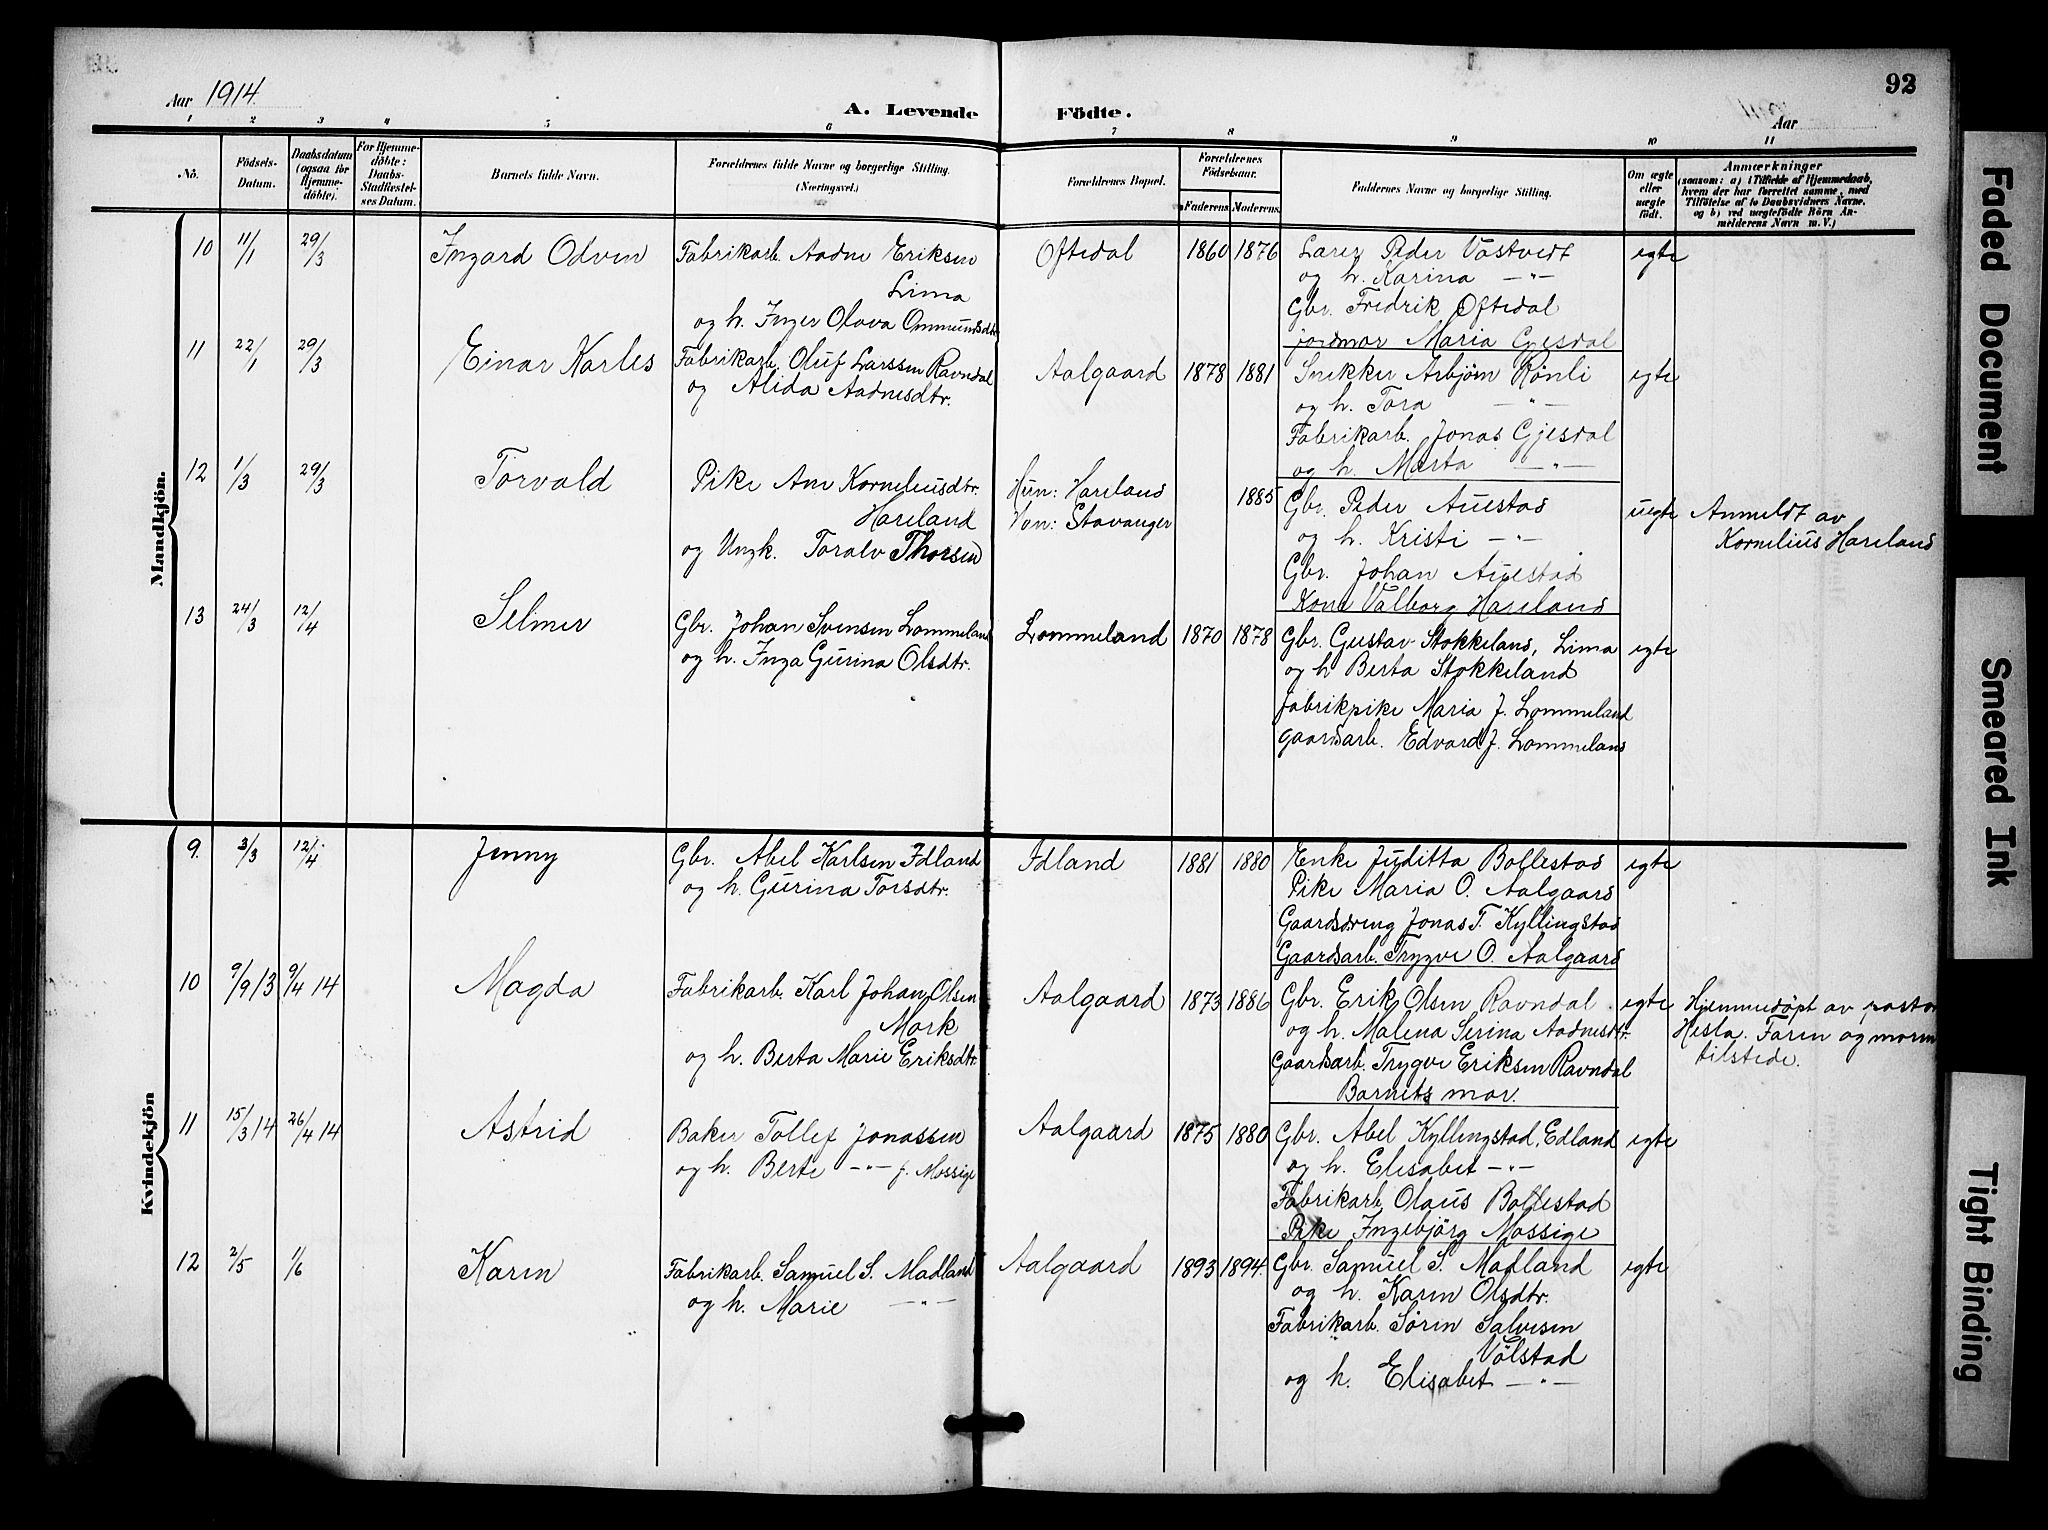 Aar 1914.
A. Levende Födte.
92
Aar
1 2 3 4 5 6 7 8 9 10 11
Nö.
Födsels-Datum.
Daabsdatum (ogsaa för Hjemme-döbte).
For Hjemme-döbte: Daabs-Stadfæstel-ses Datum.
Barnets fulde Navn.
Forældrenes fulde Navne og borgerlige Stilling. (Næringsvei.)
Forældrenes Bopæl.
Forældrenes Födselsaar.
Faderens Moderens
Faddernes Navne og borgerlige Stilling.
Om ægte eller uægte födt.
Anmærkninger
(saasom: a) i Tilfælde af Hjemmedaab, hvem der har forrettet samme, med Tilföielse af to Daabsvidners Navne, og b) ved uægtefödte Börn An-melderens Navn m. V.)
Mandkjön.
10 11/1 29/3 Ingard Odvin Fabrikarb. Aadne Eriksen Oftedal 1860 1876 Lærer Peder Vastvedt egte
Lima og h. Karina -"-
og h. Inger Olava Ommundsdtr. Gbr. Fredrik Oftedal
jordmor Maria Gjesdal
11 22/1 29/3 Einar Karles Fabrikarb. Oluf Larssen Ravndal Aalgaard 1878 1881 Snekker Asbjørn Rönli egte
og Alida Aadnesdtr. og h. Tora -"-
Fabrikarb. Jonas Gjesdal
og h. Marta -"-
12 1/3 29/3 Torvald Pike Ane Korneliusdtr. Hun: Hareland 1885 Gbr. Peder Auestad uegte Anmeldt av
Hareland Han: Stavanger og h. Kristi -"- Kornelius Hareland
og Ungk. Toralv Thorsen Gbr. Johan Auestad
Kone Valborg Hareland
13 24/3 12/4 Selmer Gbr. Johan Svensen Lommeland Lommeland 1870 1878 Gbr. Gustav Stokkeland, Lima egte
og h. Inga Gurina Olsdtr. og h Berta Stokkeland
fabrikpike Maria J. Lommeland
gaardsarb. Edvard J. Lommeland
Kvindekjön
9. 3/3 12/4 Jenny Gbr. Abel Karlsen Idland Idland 1881 1880 Enke Juditta Bollestad egte
og h. Gurina Torsdtr. Pike Maria O. Aalgaard
Gaardsdreng Jonas T. Kyllingstad
Gaardsarb. Trygve O. Aalgaard
10 9/9 13 9/4 14 Magda Fabrikarb. Karl Johan Olsen Aalgaard 1873 1886 Gbr. Erik Olsen Ravndal egte Hjemmedøpt av pastor
Mork og h. Malena Serina Aadnesdtr. Hesla. Faren og moren
og h. Berta Marie Eriksdtr. Gaardsarb. Trygve Eriksen Ravndal tilstede.
Barnets mor.
11 15/3 14 26/4 14 Astrid Baker Tollef Jonassen Aalgaard 1875 1880 Gbr. Abel Kyllingstad, Edland egte
og h. Berte -"- f. Mossige og h. Elisabet -"-
Fabrikarb. Olaus Bollestad
Pike Ingebjörg Mossige
12 2/5 1/6 Karen Fabrikarb. Samuel S. Madland Aalgaard 1893 1894. Gbr. Samuel S. Madland egte
og h. Marie -"- og h. Karen Olsdtr.
Fabrikarb. Sören Salvesen
Völstad
og h. Elisabet -"-
Faded Document
Smeared Ink
Tight Binding